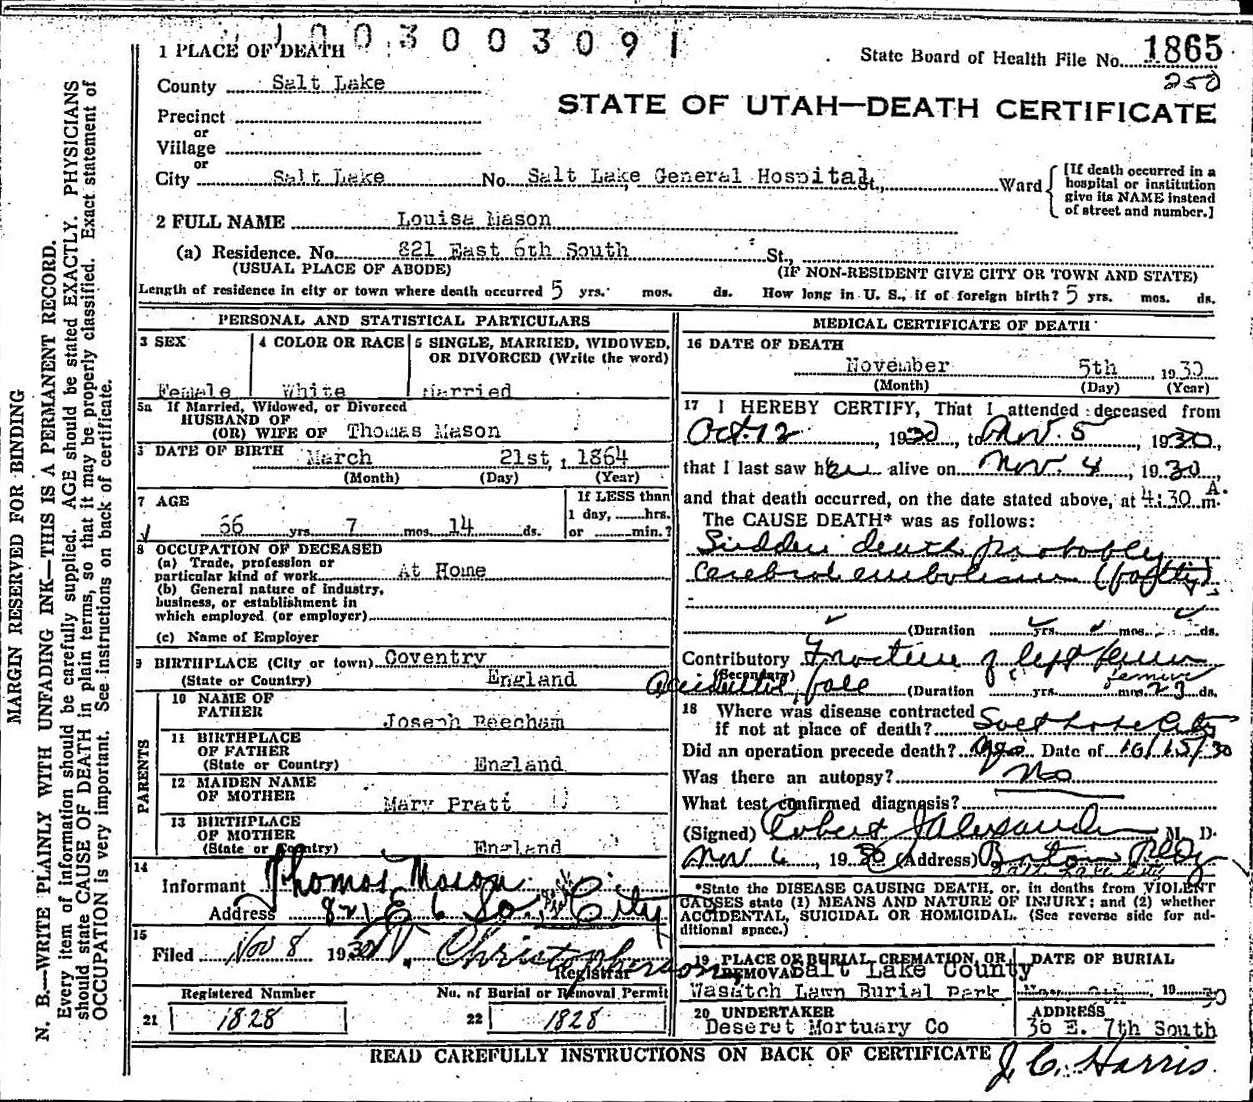 1003003091
1 PLACE OF DEATH
State Board of Health File No. 1865
250
County Salt Lake
STATE OF UTAH—DEATH CERTIFICATE
Precinct
or
Village
or
City Salt Lake No. Salt Lake General Hospital St., Ward
[If death occurred in a
hospital or institution
give its NAME instead
of street and number.]
2 FULL NAME Louisa Mason
(a) Residence. No. 821 East 6th South St.,
(USUAL PLACE OF ABODE) (IF NON-RESIDENT GIVE CITY OR TOWN AND STATE)
Length of residence in city or town where death occurred 5 yrs. mos. ds. How long in U. S., if of foreign birth? 5 yrs. mos. ds.
PERSONAL AND STATISTICAL PARTICULARS
3 SEX 4 COLOR OR RACE 5 SINGLE, MARRIED, WIDOWED,
OR DIVORCED (Write the word)
Female White Married
5a If Married, Widowed, or Divorced
HUSBAND OF
(OR) WIFE OF Thomas Mason
DATE OF BIRTH March 21st, 1864
(Month) (Day) (Year)
7 AGE If LESS than
1 day, hrs.
66 yrs. 7 mos. 14 ds. or min.?
8 OCCUPATION OF DECEASED
(a) Trade, profession or
particular kind of work At Home
(b) General nature of industry,
business, or establishment in
which employed (or employer)
(c) Name of Employer
9 BIRTHPLACE (City or town) Coventry
(State or Country) England
PARENTS
10 NAME OF
FATHER Joseph Beecham
11 BIRTHPLACE
OF FATHER
(State or Country) England
12 MAIDEN NAME
OF MOTHER Mary Pratt
13 BIRTHPLACE
OF MOTHER
(State or Country) England
14
Informant Thomas Mason
Address 821 E 6 So. City
15
Filed Nov 8 1930 Christopherson
Registrar
Registered Number No. of Burial or Removal Permit
21 1828 22 1828
MEDICAL CERTIFICATE OF DEATH
16 DATE OF DEATH
November 5th, 1930
(Month) (Day) (Year)
17 I HEREBY CERTIFY, That I attended deceased from
Oct. 12, 1930, to Nov. 5, 1930,
that I last saw her alive on Nov. 4, 1930,
and that death occurred, on the date stated above, at 4:30 A. m.
The CAUSE DEATH* was as follows:
Sudden death probably
Cerebral embolism (fatty)
(Duration yrs. mos. ds.
Contributory Fracture of left femur
(Secondary) femur
Accidental fall (Duration yrs. mos. 23 ds.
18 Where was disease contracted
if not at place of death? Salt Lake City
Did an operation precede death? Yes Date of 10/15/30
Was there an autopsy? No
What test confirmed diagnosis?
(Signed) Robert J Alexander M. D.
Nov 6, 1930 (Address) Boston Bldg
Salt Lake City
*State the DISEASE CAUSING DEATH, or, in deaths from VIOLENT
CAUSES state (1) MEANS AND NATURE OF INJURY; and (2) whether
ACCIDENTAL, SUICIDAL OR HOMICIDAL. (See reverse side for ad-
ditional space.)
19 PLACE OF BURIAL, CREMATION, OR DATE OF BURIAL
REMOVAL Salt Lake County
Wasatch Lawn Burial Park 1930
20 UNDERTAKER ADDRESS
Deseret Mortuary Co 36 E. 7th South
READ CAREFULLY INSTRUCTIONS ON BACK OF CERTIFICATE
J. C. Harris.
MARGIN RESERVED FOR BINDING
N. B.—WRITE PLAINLY WITH UNFADING INK—THIS IS A PERMANENT RECORD.
Every item of information should be carefully supplied. AGE should be stated EXACTLY. PHYSICIANS
should state CAUSE OF DEATH in plain terms, so that it may be properly classified. Exact statement of
OCCUPATION is very important. See instructions on back of certificate.